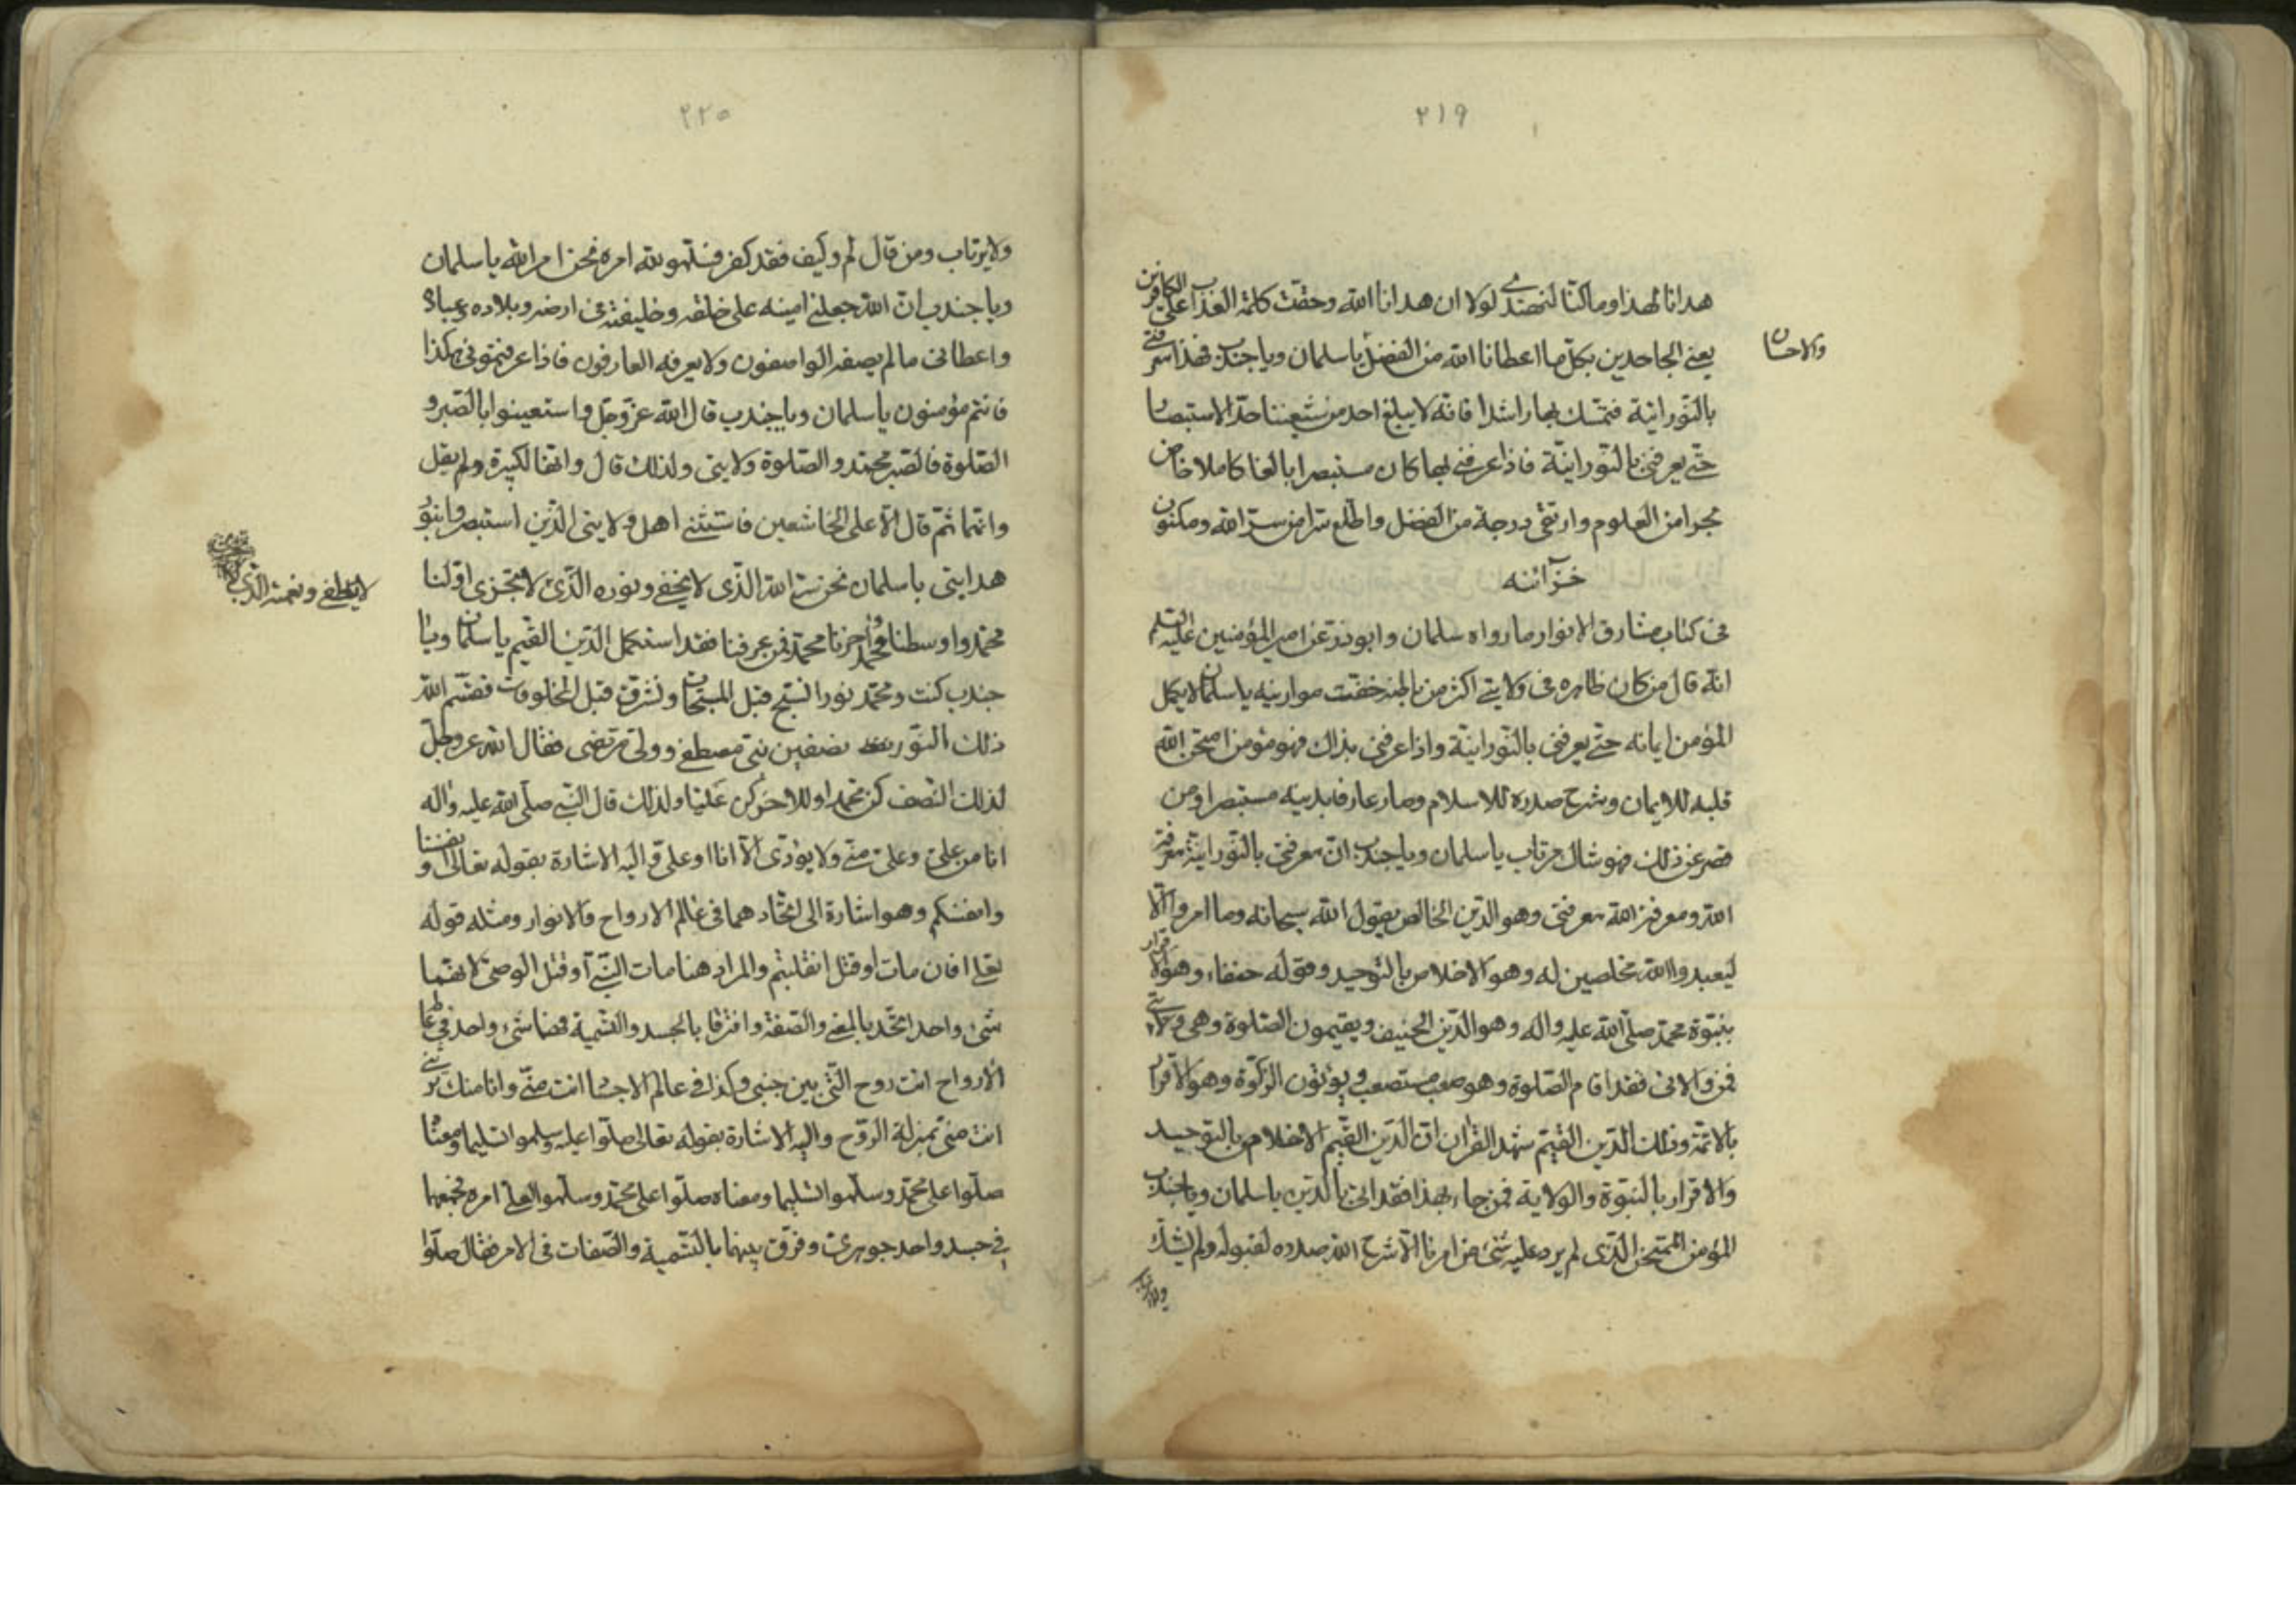 ٢١٩
هدانا لهذا وما كنا لنهتدي لولا ان هدانا الله وحقت كلمة العذاب على الكافرين
يعني الجاحدين بكل ما اعطانا الله من الفضل يا سلمان ويا جندب فهذا معرفتي
والاحسان
بالنورانية فتمسك بها راشدا فانه لا يبلغ احد من شيعتنا حد الاستبصار
حتى يعرفني بالنورانية فاذا عرفني بها كان مستبصرا بالغا كاملا خاض
بحرا من العلوم وارتقى درجة من الفضل واطلع سرا من سر الله ومكنون
خزآئنه
في كتاب مشارق الانوار ما رواه سلمان وابوذر عن امير المؤمنين عليه السلم
انه قال من كان ظاهره في ولايتي اكثر من باطنه خفت موازينه يا سلمان لا يكمل
المؤمن ايمانه حتى يعرفني بالنورانية واذا عرفني بذاك فهو مؤمن امتحن الله
قلبه للايمان وشرح صدره للاسلام وصار عارفا بدينه مستبصرا ومن
قصر عن ذلك فهو شاك مرتاب يا سلمان ويا جندب ان معرفتي بالنورانية معرفة
الله ومعرفة الله معرفتي وهو الدين الخالص بقول الله سبحانه وما امروا الا
ليعبدوا الله مخلصين له وهو الاخلاص بالتوحيد وقوله حنفاء وهو الاقرار
بنبوة محمد صلى الله عليه واله وهو الدين الحنيف ويقيمون الصلوة وهي ولايتي
فمن والاني فقد اقام الصلوة وهو صعب مستصعب ويؤتون الزكوة وهو الاقرار
بالائمة وذلك الدين القيم شهد القران ان الدين القيم الاخلاص بالتوحيد
والاقرار بالنبوة والولاية فمن جاء بهذا فقد اتى بالدين يا سلمان ويا جندب
المؤمن الممتحن الذي لم يرد عليه شيء من امرنا الا شرح الله صدره لقبوله ولم يشك
ولا يرتاب
٢٢٠
ولا يرتاب ومن قال لم وكيف فقد كفر فسلموا لله امره فنحن امر الله يا سلمان
ويا جندب ان الله جعلني امينه على خلقه وخليفته في ارضه وبلاده وعباده
واعطاني ما لم يصفه الواصفون ولا يعرفه العارفون فاذا عرفتموني هكذا
فانتم مؤمنون يا سلمان ويا جندب قال الله عز وجل واستعينوا بالصبر و
الصلوة فالصبر محمد والصلوة ولايتي ولذلك قال وانها لكبيرة ولم يقل
وانهما ثم قال الا على الخاشعين فاستثنى اهل ولايتي الذين استبصروا بنور
هدايتي يا سلمان نحن سر الله الذي لا يخفى ونوره الذي لا يجزى اولنا
لا يطفى ونعمته التي
محمد واوسطنا محمد واخرنا محمد فمن عرفنا فقد استكمل الدين القيم يا سلمان ويا
جندب كنت ومحمد نورا نسبح قبل المسبحات ونشرق قبل المخلوقات فقسم الله
ذلك النور نصفين نبي مصطفى وولي مرتضى فقال الله عز وجل
لذلك النصف كن محمدا وللاخر كن عليا ولذلك قال النبي صلى الله عليه واله
انا من علي وعلي مني ولا يؤدي الا انا او علي واليه الاشارة بقوله تعالى وانفسنا
وانفسكم وهو اشارة الى اتحادهما في عالم الارواح والانوار ومثله قوله
تعالى افان مات او قتل انقلبتم والمراد هنا مات النبي او قتل الوصي لانهما
شيء واحد اتحدا بالمعنى والصفة وافترقا بالجسد والتسمية فهما شيء واحد في عالم
الارواح انت روح التي بين جنبي وكذا في عالم الاجساد انت مني وانا منك ترثني
انت مني بمنزلة الروح واليه الاشارة بقوله تعالى صلوا عليه وسلموا تسليما ومعناه
صلوا على محمد وسلموا تسليما ومعناه صلوا على محمد وسلموا لعلي امره فجمعهما
في جسد واحد جوهري وفرق بينهما بالتسمية والصفات في الامر فقال صلوا